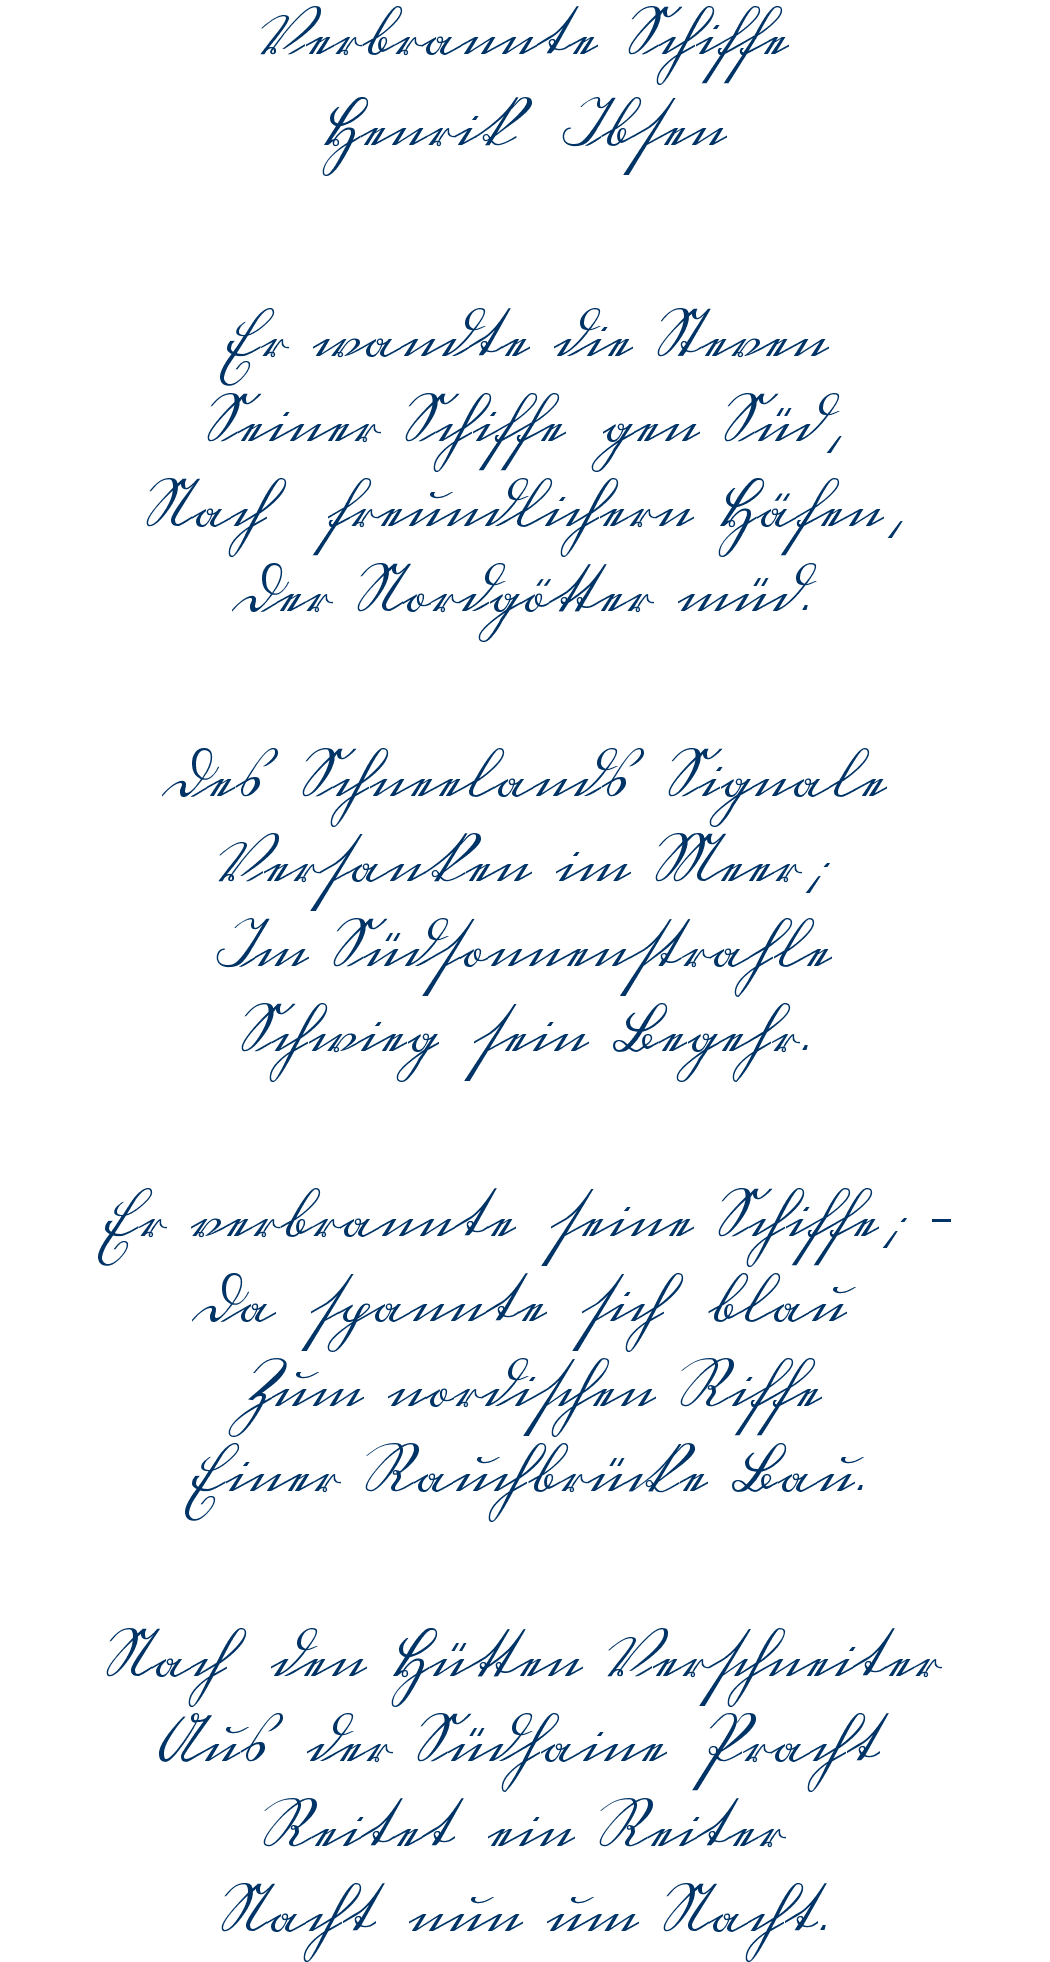 Verbrannte Schiffe
Henrik Ibsen
Er wandte die Steven
Seiner Schiffe gen Süd,
Nach freundlichern Häfen,
Der Nordgötter müd.
Des Schneelands Signale
Versanken im Meer;
Im Südsonnenstrahle
Schwieg sein Begehr.
Er verbrannte seine Schiffe; -
Da spannte sich blau
Zum nordischen Riffe
Einer Rauchbrücke Bau.
Nach den Hütten Verschneiter
Aus der Südhaine Pracht
Reitet ein Reiter
Nacht nun um Nacht.